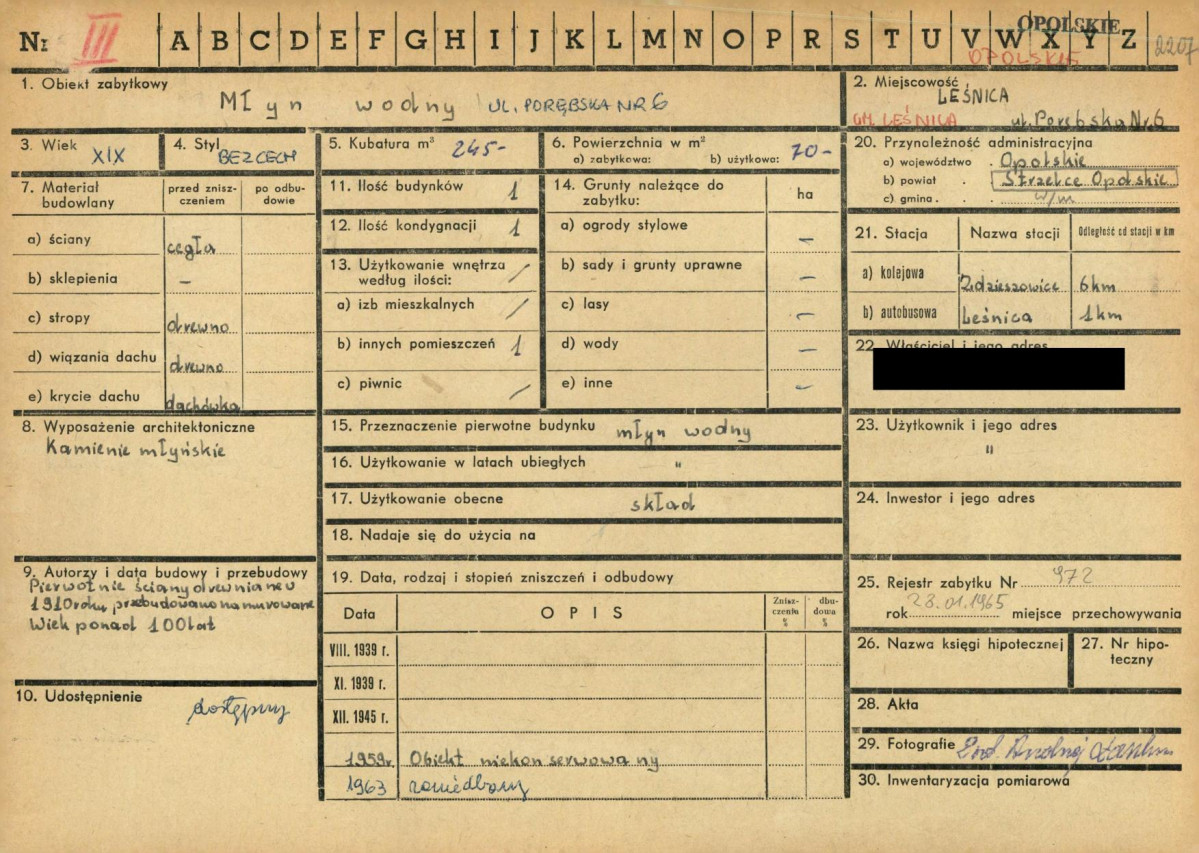 Nr III A B C D E F G H I J K L M N O P R S T U V W X Y Z 2207
OPOLSKIE
OPOLSKIE
1. Obiekt zabytkowy
Młyn wodny ul. Porębska Nr 6
2. Miejscowość
LEŚNICA
GM. LEŚNICA ul. Porębska Nr 6
3. Wiek XIX
4. Styl BEZ CECH
5. Kubatura m³ 245-
6. Powierzchnia w m²
a) zabytkowa: b) użytkowa: 70-
7. Materiał budowlany
przed zniszczeniem
po odbudowie
a) ściany cegła
b) sklepienia –
c) stropy drewno
d) wiązania dachu drewno
e) krycie dachu dachówka
8. Wyposażenie architektoniczne
Kamienie młyńskie
9. Autorzy i data budowy i przebudowy
Pierwotnie ściany drewniane w
1910 roku przebudowano na murowane
Wiek ponad 100 lat
10. Udostępnienie
dostępny
11. Ilość budynków 1
12. Ilość kondygnacji 1
13. Użytkowanie wnętrza
według ilości: /
a) izb mieszkalnych /
b) innych pomieszczeń 1
c) piwnic /
14. Grunty należące do
zabytku: ha
a) ogrody stylowe –
b) sady i grunty uprawne –
c) lasy –
d) wody –
e) inne –
15. Przeznaczenie pierwotne budynku młyn wodny
16. Użytkowanie w latach ubiegłych "
17. Użytkowanie obecne skład
18. Nadaje się do użycia na
19. Data, rodzaj i stopień zniszczeń i odbudowy
Data OPIS Zniszczenia % dbudowa %
VIII. 1939 r.
XI. 1939 r.
XII. 1945 r.
1959r. Obiekt niekonserwowany
1963 zaniedbany
20. Przynależność administracyjna
a) województwo . Opolskie
b) powiat . Strzelce Opolskie
c) gmina . w/m
21. Stacja Nazwa stacji Odległość od stacji w km
a) kolejowa Zdzieszowice 6km
b) autobusowa Leśnica 1km
22. Właściciel i jego adres
23. Użytkownik i jego adres
"
24. Inwestor i jego adres
25. Rejestr zabytku Nr 972
rok 23.01.1965 miejsce przechowywania
26. Nazwa księgi hipotecznej
27. Nr hipoteczny
28. Akta
29. Fotografie
30. Inwentaryzacja pomiarowa